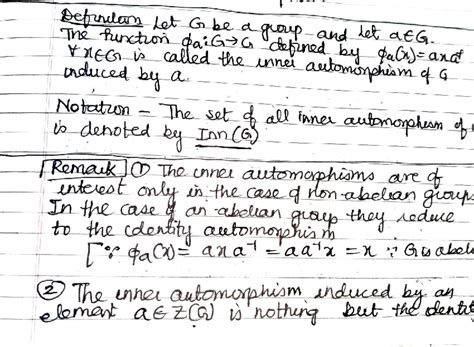 Definition Let G be a group and let a∈G.
The function ϕa: G→G defined by ϕa(x)=axa⁻¹
∀ x∈G is called the inner automorphism of G
induced by a.
Notation – The set of all inner automorphism of
is denoted by Inn(G)
Remark ① The inner automorphisms are of
interest only in the case of non-abelian groups
In the case of an abelian group they reduce
to the identity automorphism
[∵ ϕa(x) = axa⁻¹ = aa⁻¹x = x ∵ G is abel
② The inner automorphism induced by an
element a∈Z(G) is nothing but the identit